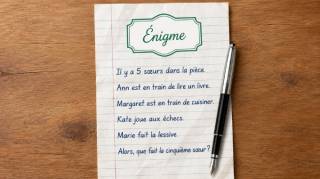 Énigme
Il y a 5 sœurs dans la pièce.
Ann est en train de lire un livre.
Margaret est en train de cuisiner.
Kate joue aux échecs.
Marie fait la lessive.
Alors, que fait la cinquième sœur ?